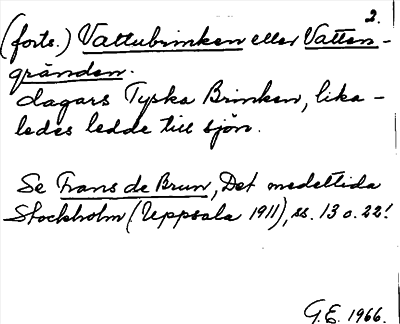 2.
(forts.) Vattubrinken eller Vatten-
gränden.
dagars Tyska Brinken, lika-
ledes ledde till sjön.
Se Frans de Brun, Det medeltida
Stockholm (Uppsala 1911), ss. 13 o. 22!
G.E. 1966.